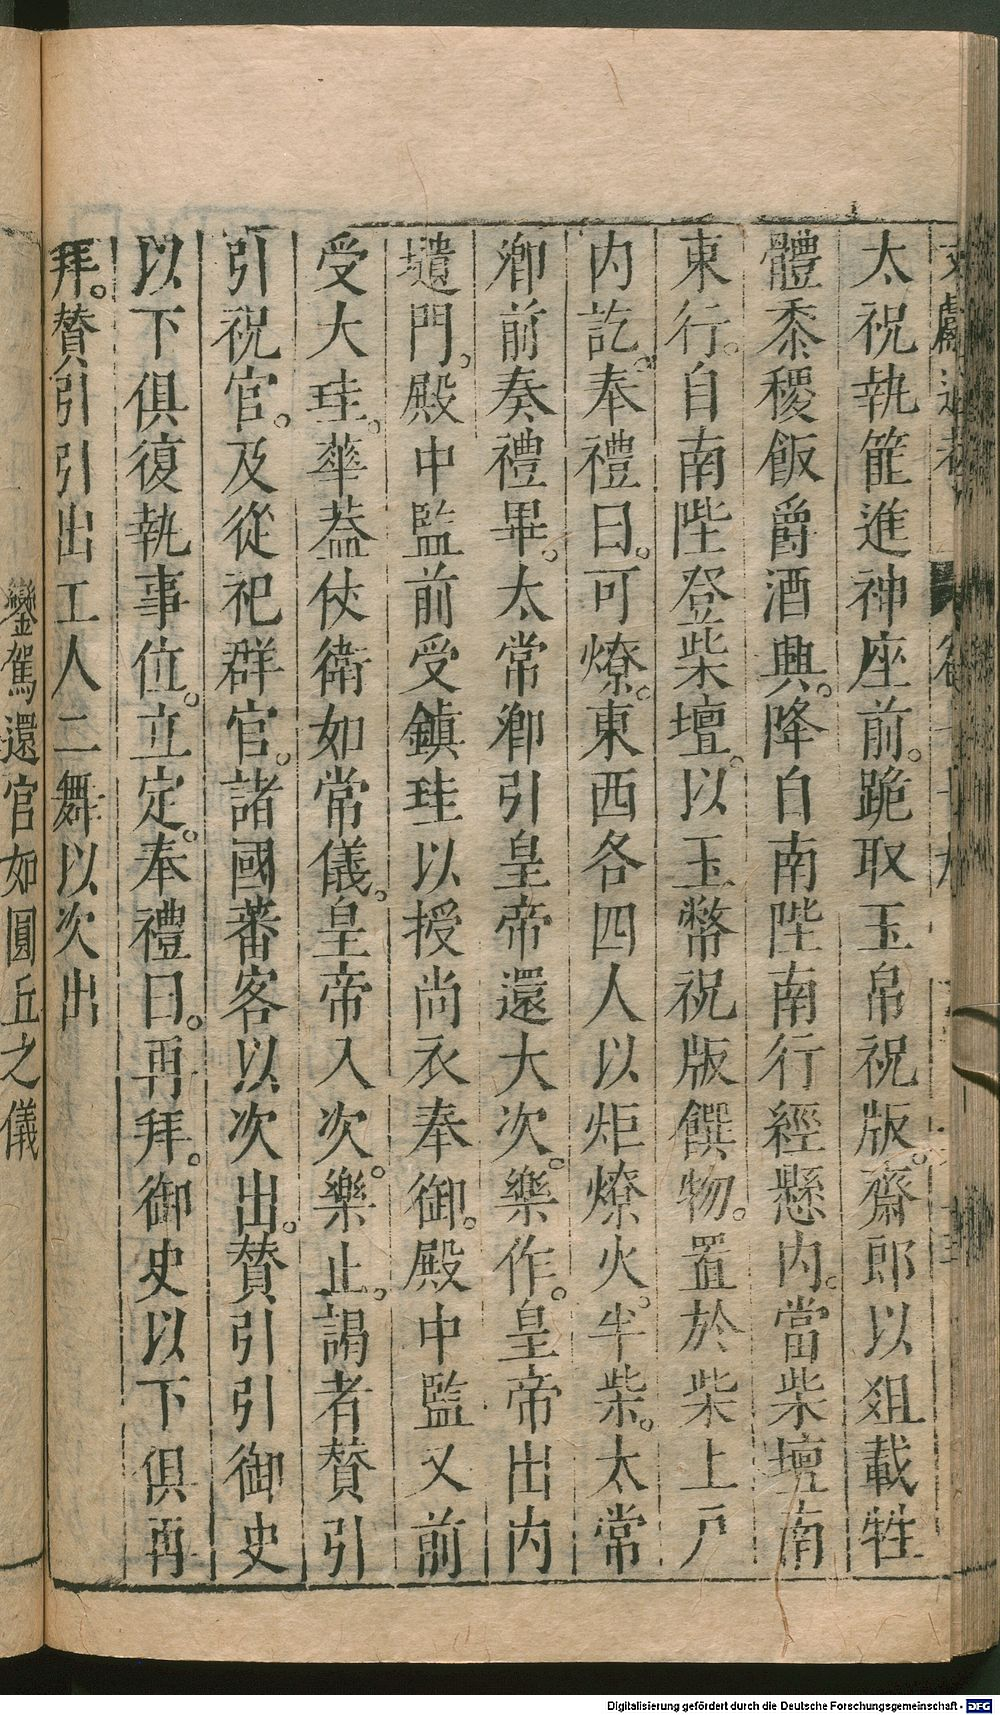 太祝執篚進神座前。跪取玉帛祝版。齋郎以俎載牲
體黍稷飯爵酒興。降自南陛南行經懸内。當柴壇南
東行。自南陛登柴壇。以玉幣祝版饌物。置於柴上戶
内訖。奉禮曰。可燎。東西各四人以炬燎火。半柴。太常
卿前奏禮畢。太常卿引皇帝還大次。樂作。皇帝出内
壝門。殿中監前受鎮珪以授尚衣奉御。殿中監又前
受大珪。華蓋仗衛如常儀。皇帝入次。樂止。謁者贊引
引祝官。及從祀群官。諸國蕃客以次出。贊引引御史
以下俱復執事位。立定。奉禮曰。再拜。御史以下俱再
拜。贊引引出工人二舞以次出
鑾駕還宮如圓丘之儀
Digitalisierung gefördert durch die Deutsche Forschungsgemeinschaft - DFG